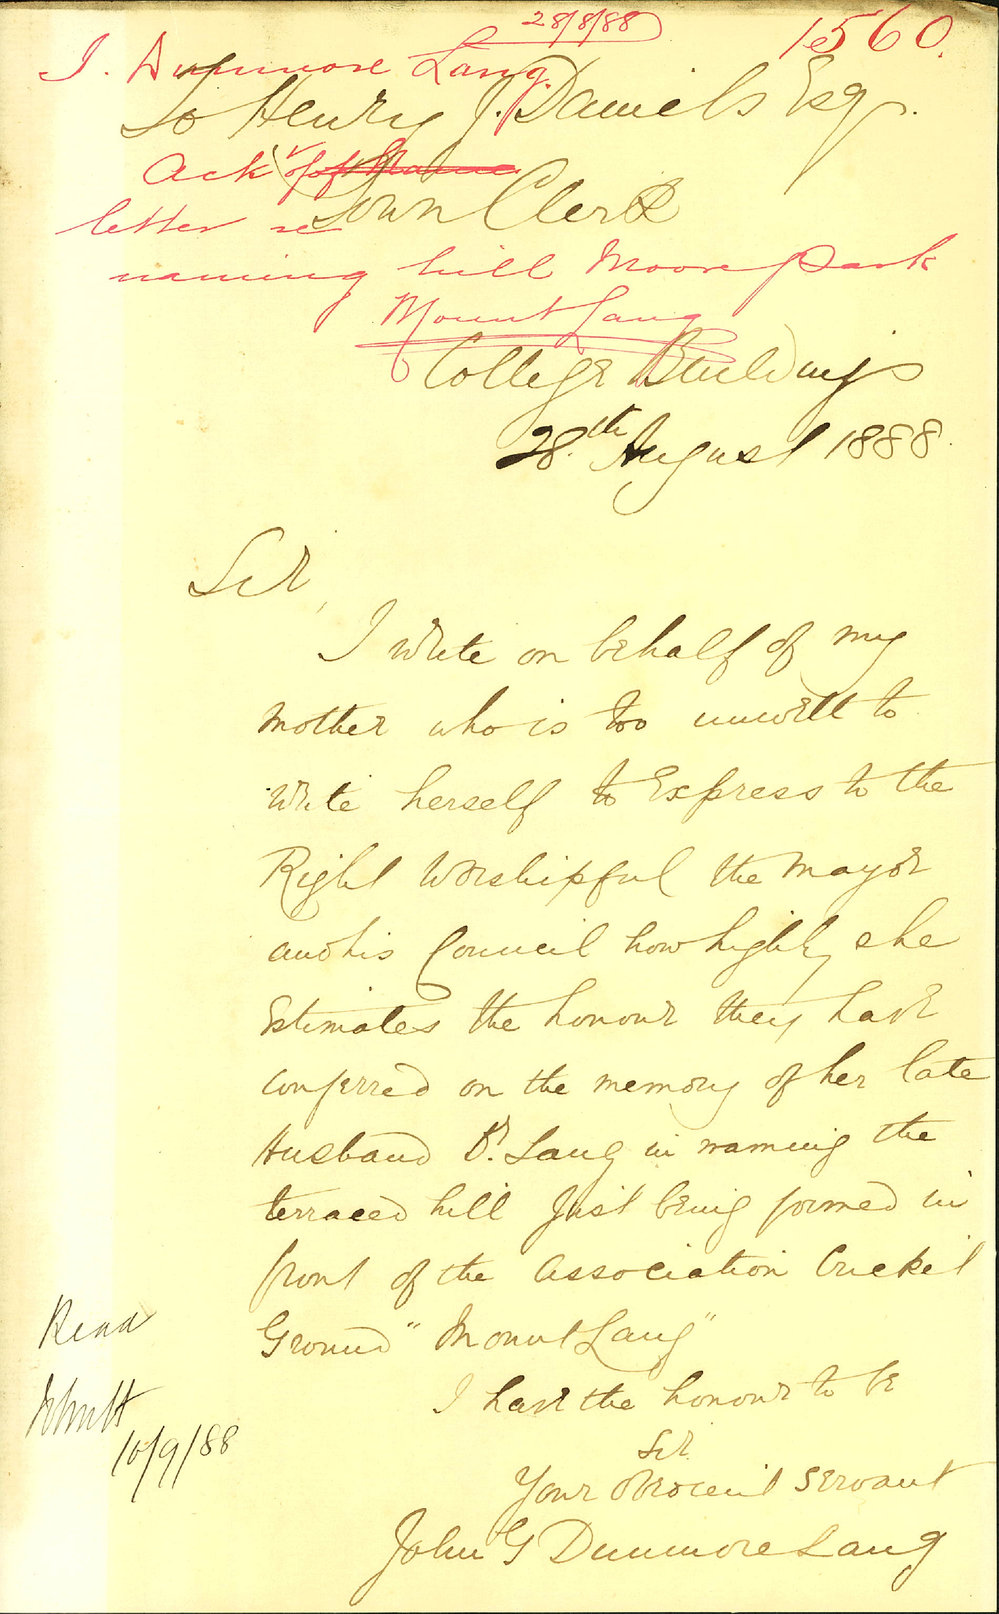 28/8/88
1560.
J. Dunmore Lang.
To Henry J. Daniels Esq.
Ack
Town Clerk
letter re
naming hill Moore Park
Mount Lang
College Buildings
28th August 1888.
Sir,
I write on behalf of my
mother who is too unwell to
write herself to Express to the
Right Worshipful the Mayor
and his Council how highly she
Estimates the honour they have
conferred on the memory of her late
Husband Dr. Lang in naming the
terraced hill just being formed in
front of the Association Cricket
Ground "Mount Lang"
I have the honour to be
Sir
Your Obedient Servant
John G Dunmore Lang
Read
10/9/88